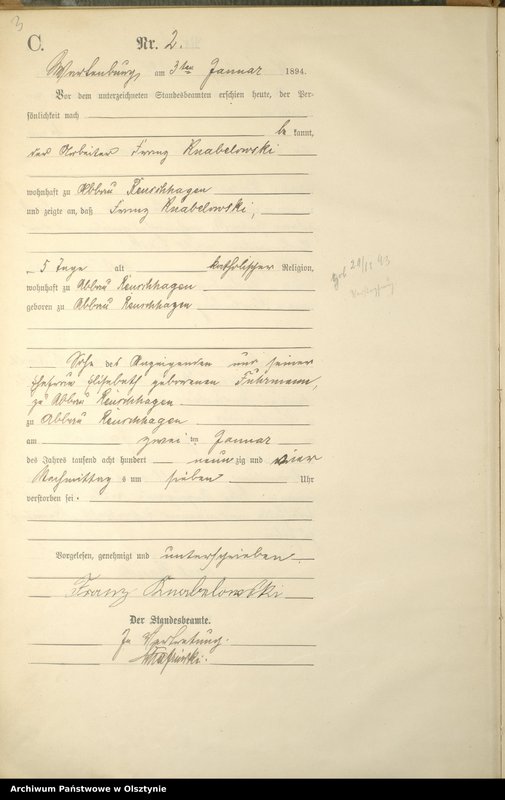 3
C.
Nr. 2.
Wartenburg, am 3ten Januar 1894.
Vor dem unterzeichneten Standesbeamten erschien heute, der Per-
sönlichkeit nach
be kannt,
der Arbeiter Franz Knabelowski
wohnhaft zu Abbau Reuschhagen
und zeigte an, daß Franz Knabelowski,
5 Tage alt katholischer Religion,
wohnhaft zu Abbau Reuschhagen
geboren zu Abbau Reuschhagen
Sohn des Anzeigenden und seiner
Ehefrau Elisabeth geborenen Fuhrmann,
zu Abbau Reuschhagen
zu Abbau Reuschhagen
am zwei ten Januar
des Jahres tausend acht hundert neun zig und vier
Nachmittag s um sieben Uhr
verstorben sei.
Vorgelesen, genehmigt und unterschrieben.
Franz Knabelowski
Der Standesbeamte.
In Vertretung.
geb 29/11 93
Archiwum Państwowe w Olsztynie